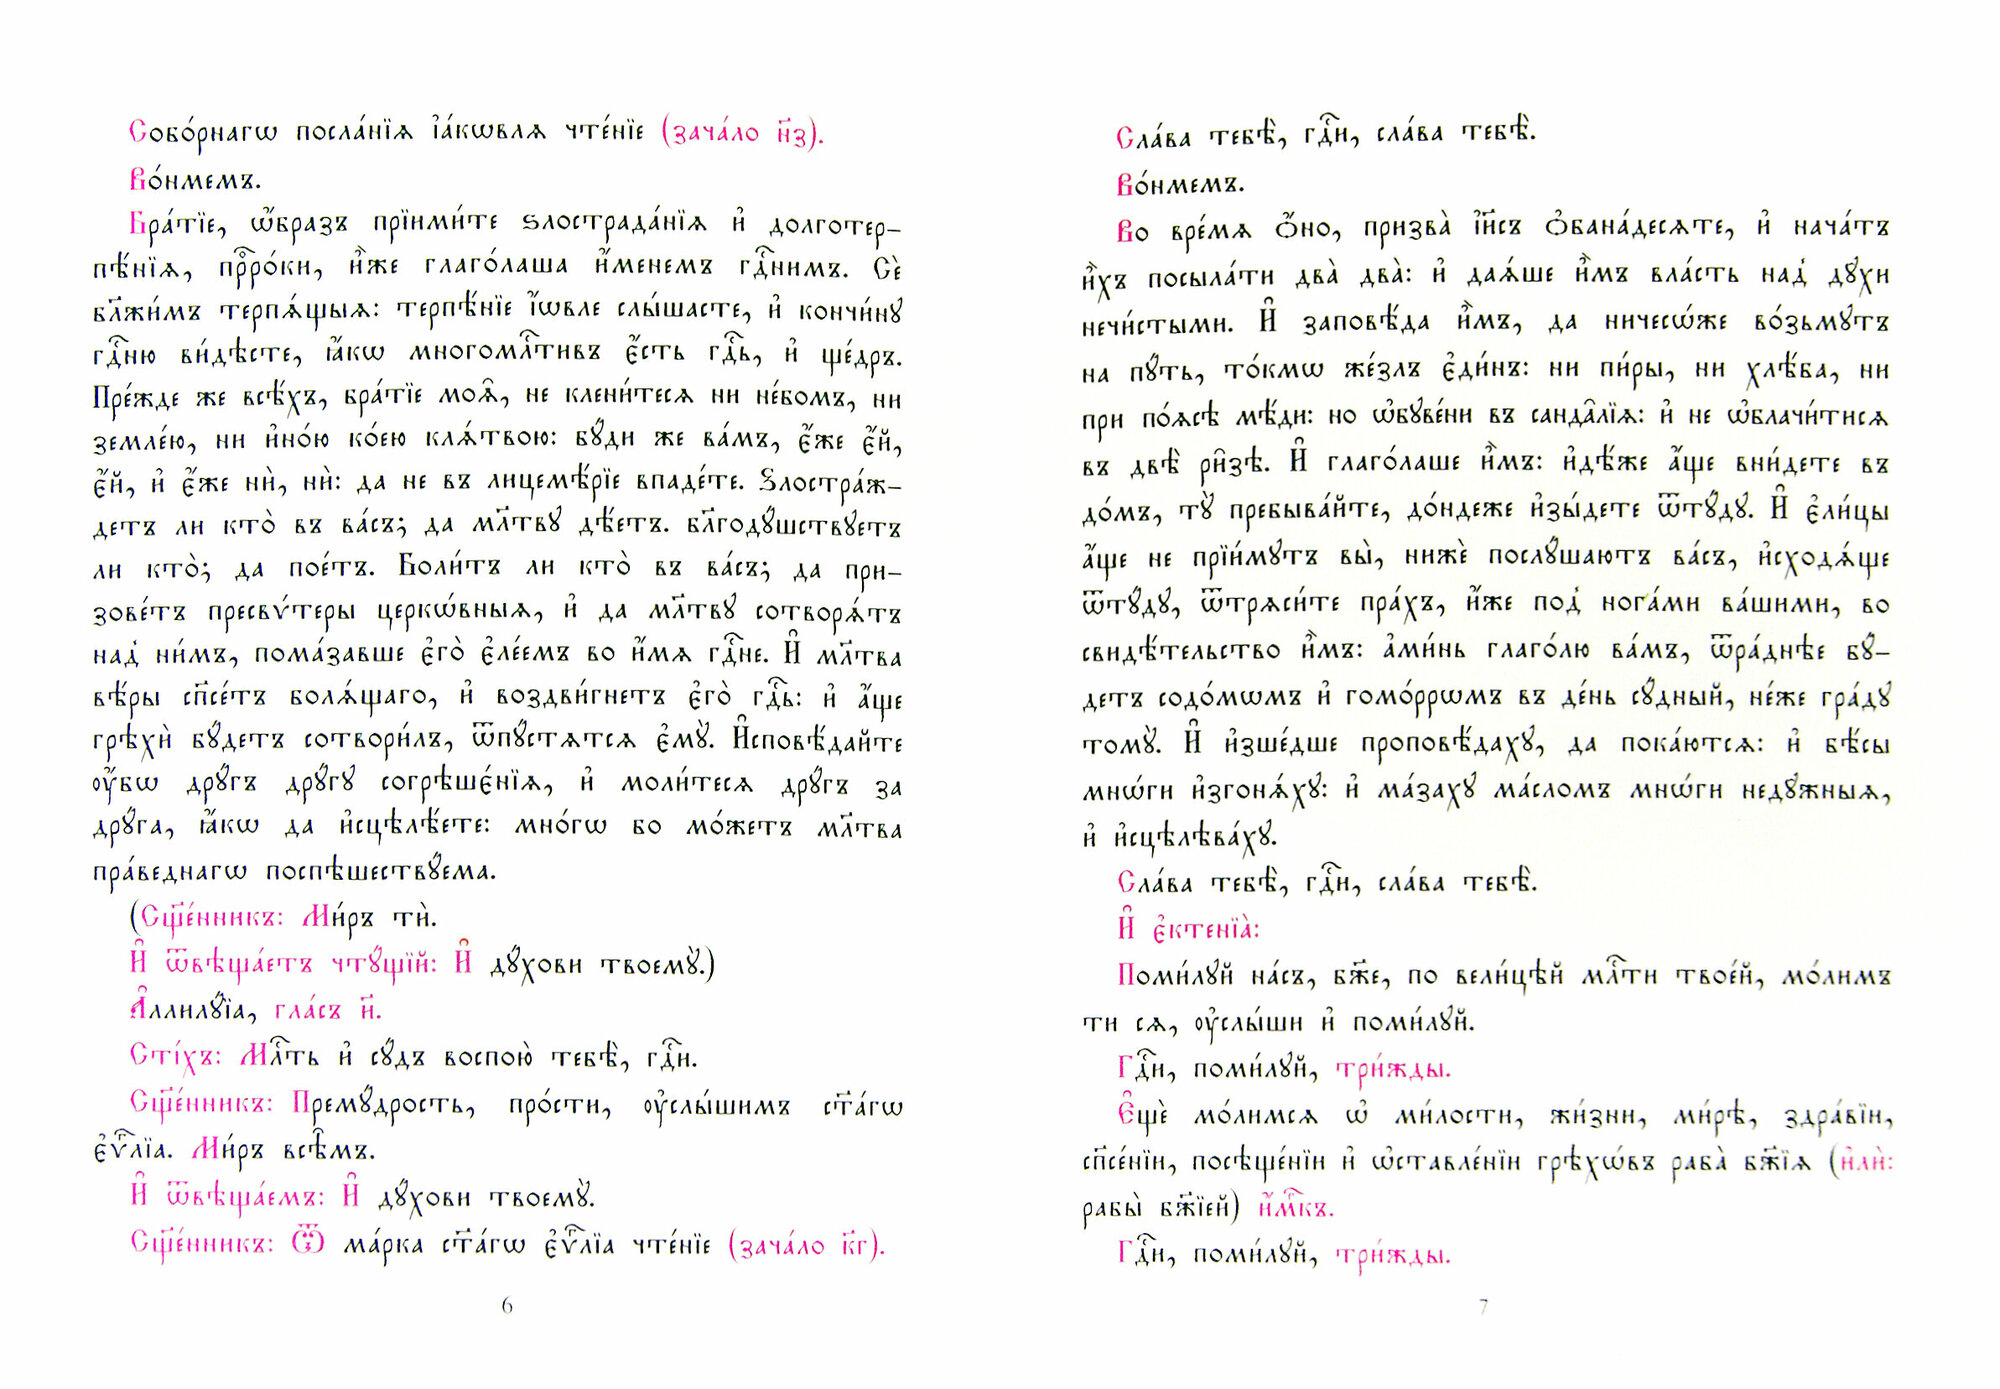 Собо́рнагѡ посла́нїѧ і҆а́кѡвлѧ чте́нїе (зача́ло н҃з).
Во́нмемъ.
Бра́тїе, ѡ҆́бразъ прїими́те ѕлострада́нїѧ и҆ долготер-
пѣ́нїѧ, прⷪ҇ро́ки, и҆̀же глаго́лаша и҆́менемъ гдⷭ҇нимъ. Сѐ
бл҃жи́мъ терпѧ́щыѧ: терпѣ́нїе і҆́ѡвле слы́шасте, и҆ кончи́ну
гдⷭ҇ню ви́дѣсте, ꙗ҆́кѡ многомлⷭ҇тивъ є҆́сть гдⷭ҇ь, и҆ ще́дръ.
Пре́жде же всѣ́хъ, бра́тїе моѧ҄, не клени́тесѧ ни не́бомъ, ни
земле́ю, ни и҆но́ю ко́ею клѧ́твою: бꙋ́ди же ва́мъ, є҆́же є҆́й,
є҆́й, и҆ є҆́же нѝ, нѝ: да не въ лицемѣ́рїе впаде́те. Ѕлостра́ж-
детъ ли кто̀ въ ва́съ; да мл҃твꙋ дѣ́етъ. бл҃годꙋ́шствꙋетъ
ли кто̀; да пое́тъ. Боли́тъ ли кто̀ въ ва́съ; да при-
зове́тъ пресвѵ́теры церкѡ́вныѧ, и҆ да мл҃твꙋ сотворѧ́тъ
над̾ ни́мъ, пома́завше є҆го̀ є҆ле́емъ во и҆́мѧ гдⷭ҇не. И҆ мл҃тва
вѣ́ры сп҃се́тъ болѧ́щаго, и҆ воздви́гнетъ є҆го̀ гдⷭ҇ь: и҆ а҆́ще
грѣхѝ бꙋ́детъ сотвори́лъ, ѿпꙋ́стѧтсѧ є҆мꙋ̀. И҆сповѣ́дайте
ᲂу҆̀бѡ дрꙋ́гъ дрꙋ́гꙋ согрѣшє́нїѧ, и҆ моли́тесѧ дрꙋ́гъ за
дрꙋ́га, ꙗ҆́кѡ да и҆сцѣлѣ́ете: мно́гѡ бо мо́жетъ мл҃тва
пра́веднагѡ поспѣшествꙋ́ема.
(Сщ҃е́нникъ: Ми́ръ тѝ.
И҆ ѿвѣща́етъ чтꙋ́щїй: И҆ дꙋ́хови твоемꙋ̀.)
А҆ллилꙋ́їа, гла́съ и҃.
Сті́хъ: Млⷭ҇ть и҆ сꙋ́дъ воспою̀ тебѣ̀, гдⷭ҇и.
Сщ҃е́нникъ: Премꙋ́дрость, про́сти, ᲂу҆слы́шимъ ст҃а́гѡ
є҆ѵⷢ҇лїа. Ми́ръ всѣ̑мъ.
И҆ ѿвѣща́емъ: И҆ дꙋ́хови твоемꙋ̀.
Сщ҃е́нникъ: Ѿ ма́рка ст҃а́гѡ є҆ѵⷢ҇лїа чте́нїе (зача́ло к҃г).
6
Сла́ва тебѣ̀, гдⷭ҇и, сла́ва тебѣ̀.
Во́нмемъ.
Во вре́мѧ ѻ҆́но, призва̀ і҆и҃съ ѻ҆бана́десѧте, и҆ нача́тъ
и҆̀хъ посыла́ти два̀ два̀: и҆ даѧ́ше и҆̀мъ вла́сть над̾ дꙋ́хи
нечи́стыми. И҆ заповѣ́да и҆̀мъ, да ничесѡ́же во́зьмꙋтъ
на пꙋ́ть, то́кмѡ же́злъ є҆ди́нъ: ни пи́ры, ни хлѣ́ба, ни
при по́ѧсѣ мѣ́ди: но ѡ҆бꙋве́ни въ санда̑лїѧ: и҆ не ѡ҆блачи́тисѧ
въ двѣ̀ ри̑зѣ. И҆ глаго́лаше и҆̀мъ: и҆дѣ́же а҆́ще вни́дете въ
до́мъ, тꙋ̀ пребыва́йте, до́ндеже и҆зы́дете ѿтꙋ́дꙋ. И҆ є҆ли́цы
а҆́ще не прїи́мꙋтъ вы̀, нижѐ послꙋ́шаютъ ва́съ, и҆сходѧ́ще
ѿтꙋ́дꙋ, ѿтрѧси́те пра́хъ, и҆́же под̾ нога́ми ва́шими, во
свидѣ́тельство и҆̀мъ: а҆ми́нь глаго́лю ва́мъ, ѿра́днѣе бꙋ́-
детъ содо́мѡмъ и҆ гомо́ррѡмъ въ де́нь сꙋ́дный, не́же гра́дꙋ
томꙋ̀. И҆ и҆зше́дше проповѣ́дахꙋ, да пока́ютсѧ: и҆ бѣ́сы
мнѡ́ги и҆згонѧ́хꙋ: и҆ ма́захꙋ ма́сломъ мнѡ́ги недꙋ́жныѧ,
и҆ и҆сцѣлѣва́хꙋ.
Сла́ва тебѣ̀, гдⷭ҇и, сла́ва тебѣ̀.
И҆ є҆ктенїа̀:
Поми́лꙋй на́съ, бж҃е, по вели́цѣй млⷭ҇ти твое́й, мо́лим
ти сѧ, ᲂу҆слы́ши и҆ поми́лꙋй.
Гдⷭ҇и, поми́лꙋй, три́жды.
Є҆щѐ мо́лимсѧ ѡ҆ ми́лости, жи́зни, ми́рѣ, здра́вїи,
сп҃се́нїи, посѣще́нїи и҆ ѡ҆ставле́нїи грѣхѡ́въ раба̀ бж҃їѧ (и҆лѝ:
рабы̀ бж҃їей) и҆́мⷬ҇къ.
Гдⷭ҇и, поми́лꙋй, три́жды.
7